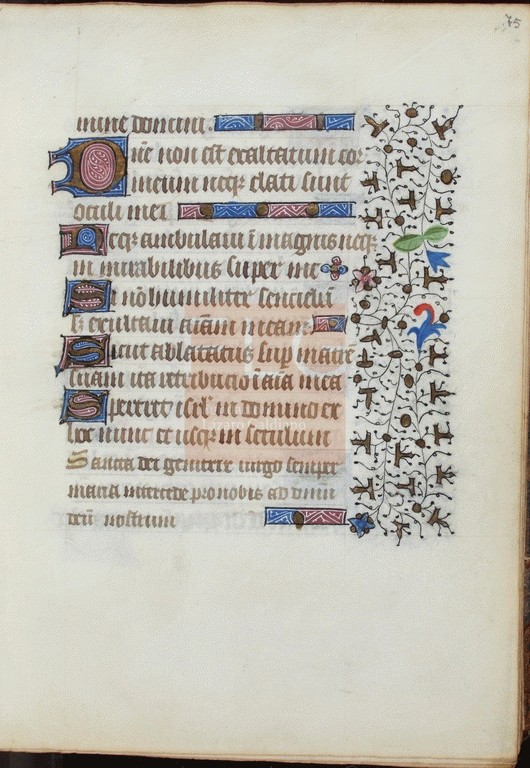 75
mine domini.
Dñe non est exaltatum cor
meum neqz elati sunt
oculi mei
Neqz ambulaui ī magnis neqz
in mirabilibus super me
Si nō humiliter sencieba
s exultaui aīam meam
Sicut ablatatus sup matrē
suam ita retribucio ī aīa mea
Speret isrl' in domino ex
hoc nunc et usqz in seculum
Sancta dei genitrix uirgo semper
maria intercede pro nobis ad dnm
deū nostrum
Lizaro Galdiano